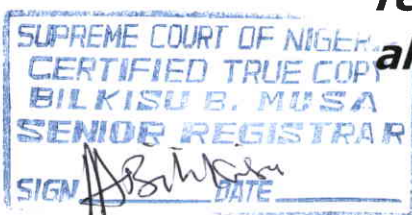 SUPREME COURT OF NIGER
CERTIFIED TRUE COPY
al
BILKISU B. MUSA
SENIOR REGISTRAR
SIGN DATE